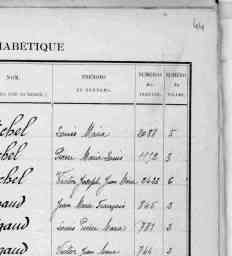 44
HABÉTIQUE
NOM. PRÉNOMS NUMÉROS NUMÉRO
DU DE
chel Louis Marie 2088 5
hel Pierre Marie Louis 1172 3
chel Victor Joseph Jean Marie 2425 6
naud Jean Marie François 845 2
gaud Louis Pierre Marie 781 2
gaud Victor Jean Marie 744 2